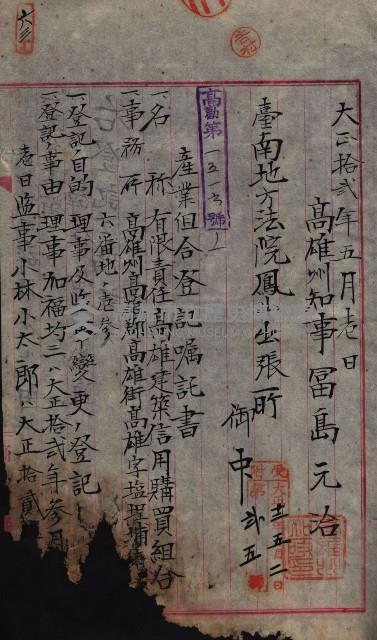 大正拾弐年五月壱日
高雄州知事冨島元治
臺南地方法院鳳山出張所
御中
高勸第一五一六號
産業組合登記嘱託書
一、名称 有限責任高雄建築信用購買組合
一、事務所 高雄州高雄郡高雄街高雄字塩埕埔
六番地ノ壱
一、登記ノ目的 理事及監事ノ変更ノ登記
一、登記ノ事由 理事加福均三ハ大正拾弐年参月
壱日監事小林小太郎ハ大正拾貳